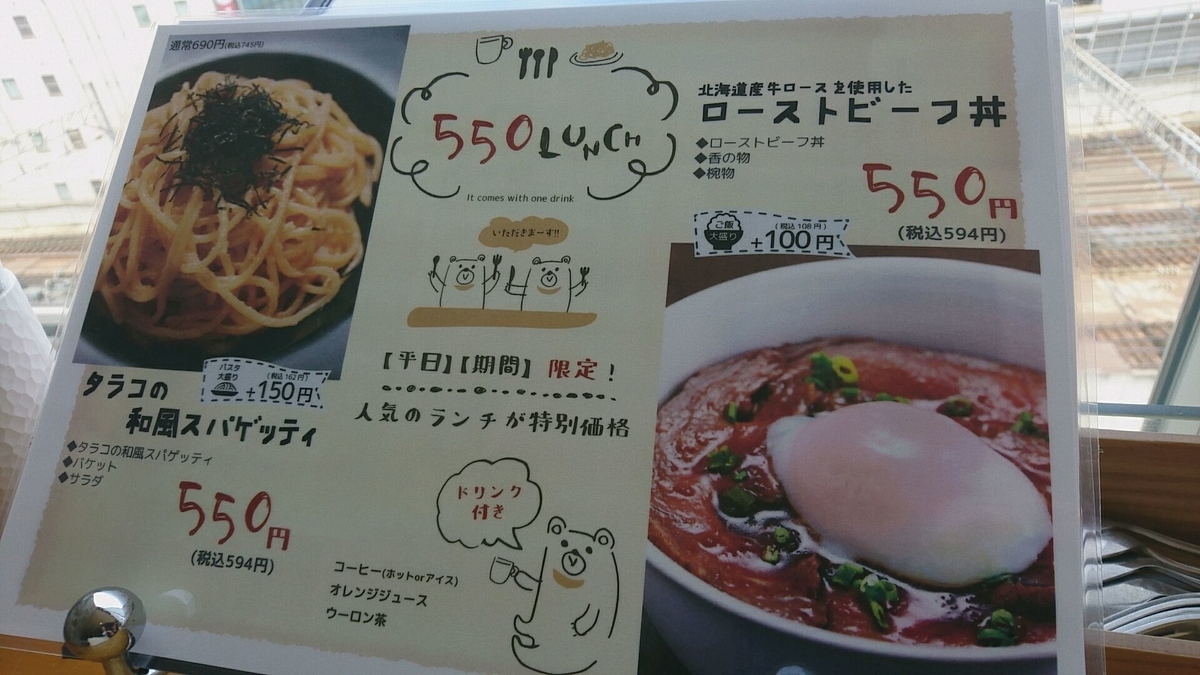 通常690円(税込745円)
550 LUNCH
It comes with one drink
いただきまーす!!
【平日】【期間】限定!
人気のランチが特別価格
パスタ
大盛り
(税込162円)
+150円
タラコの
和風スパゲッティ
◆タラコの和風スパゲッティ
◆バケット
◆サラダ
550円
(税込594円)
ドリンク
付き
コーヒー(ホットorアイス)
オレンジジュース
ウーロン茶
北海道産牛ロースを使用した
ローストビーフ丼
◆ローストビーフ丼
◆香の物
◆椀物
550円
(税込594円)
ご飯
大盛り
(税込108円)
+100円